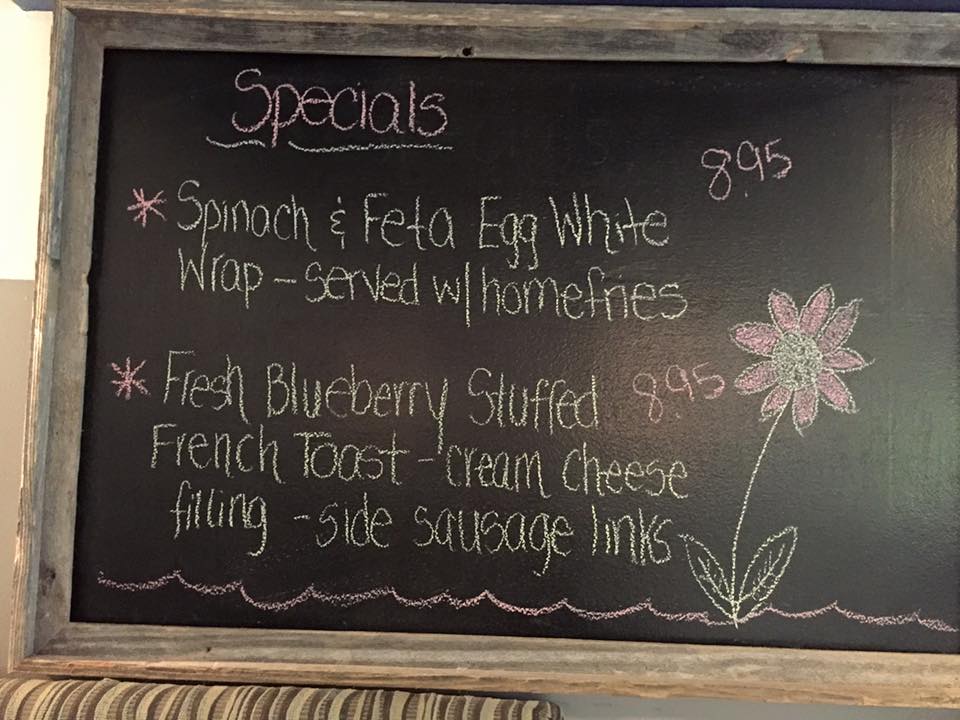 Specials
8.95
* Spinach & Feta Egg White
Wrap - served w/ homefries
* Fresh Blueberry Stuffed 8.95
French Toast - cream cheese
filling - side sausage links